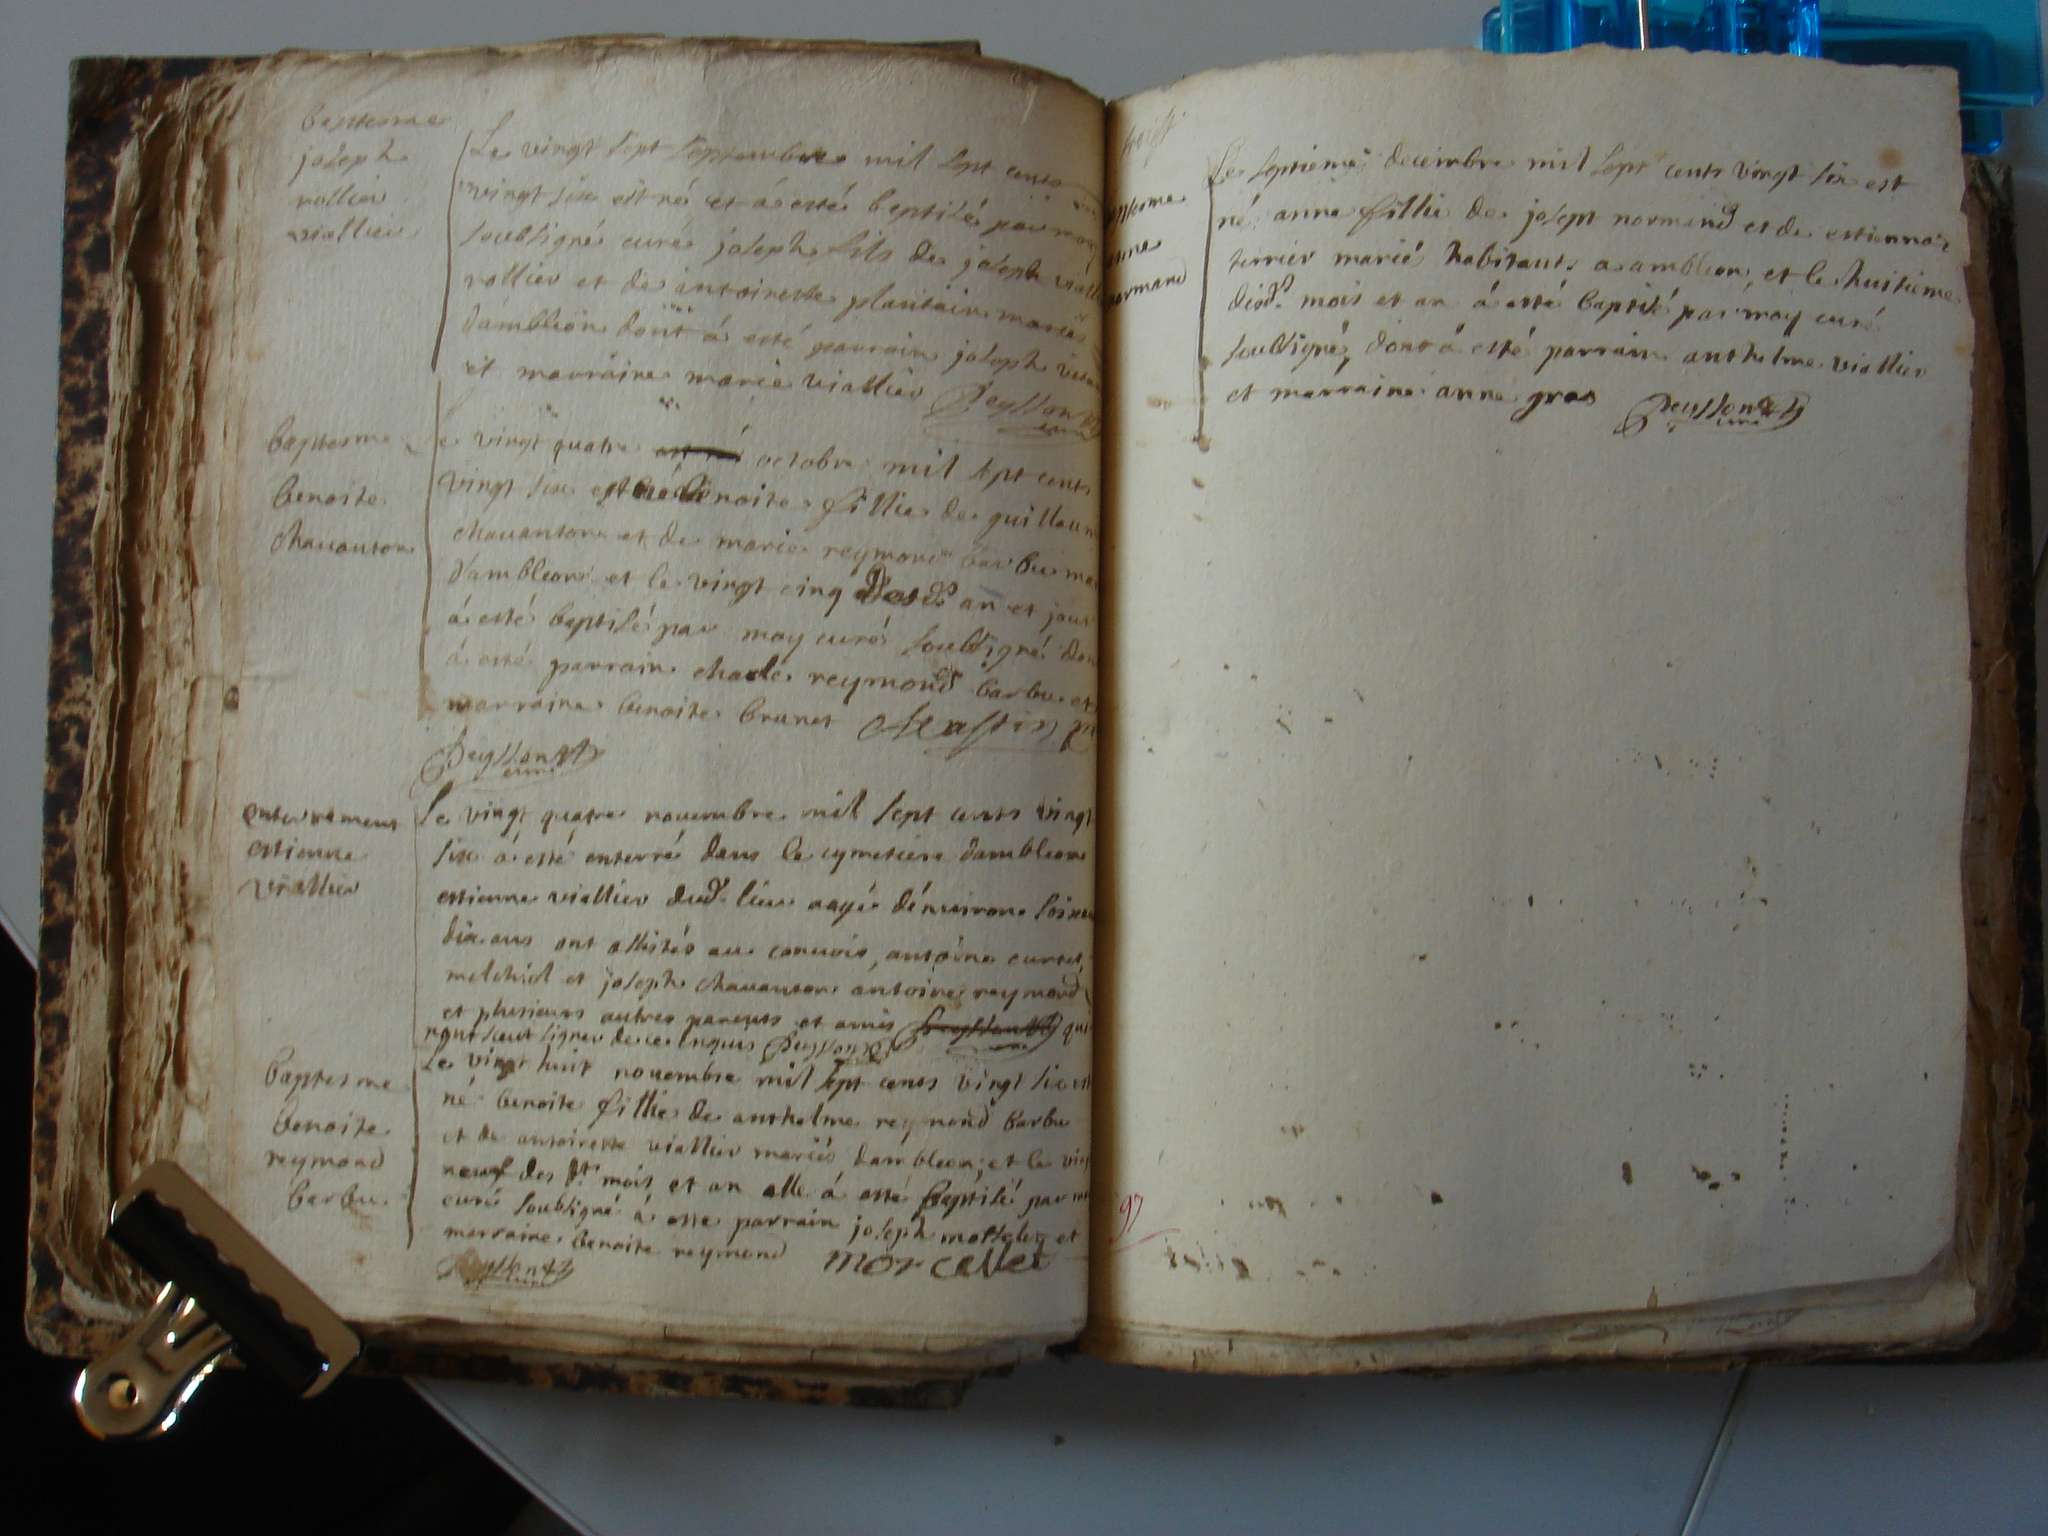 baptesme
joseph
rollier
viallier
Le vingt sept septembre mil sept cents
vingt six est né et á esté beptisé par moy
soubsigné curé joseph fils de joseph viall
rollier et de antoinette plantain mariés
dambléon dont á esté parrain joseph
et marraine marie viallier Peysson curé
baptesme
benoite
chauanton
Le vingt quatre octobre mil sept cents
vingt six est né benoite fillie de guillaum
chauanton et de marie reymond barbu ma
dambleon et le vingt cinq desd. an et jour
á esté beptisé par moy curé soubsigné don
á esté parrain charle reymond barbu et
marraine benoite brunet
Peysson curé
enterrement
estienne
viallier
Le vingt quatre nouembre mil sept cents vingt
six á esté enterré dans le cymetiere dambleon
estienne viallier dud. lieu aagé dénuiron soixan
dix ans ont assistés au conuois, antoine curtet,
melchiol et joseph chauanton antoine reymond
et plusieurs autres parents et amis qui
nont sceut signer de ce enquis Peysson
baptesme
benoite
reymond
barbu
Le vingt huit nouembre mil sept cents vingt six est
né benoite fillie de anthelme reymond barbu
et de antoinette viallier mariés dambleon, et le vin
neuf des dt. mois et an elle á esté beptisé par m
curé soubsigné á esté parrain joseph et
marraine benoite reymond morcellet
Peysson curé
anne
normand
Le septieme decembre mil sept cents vingt six est
né anne fillie de josept normand et de estiennoz
terrier marié habitants a ambleon, et le huitieme
desd. mois et an á esté baptisé par moy curé
soubsigné, dont á esté parrain anthelme viallier
et marraine anne gros Peysson curé
97